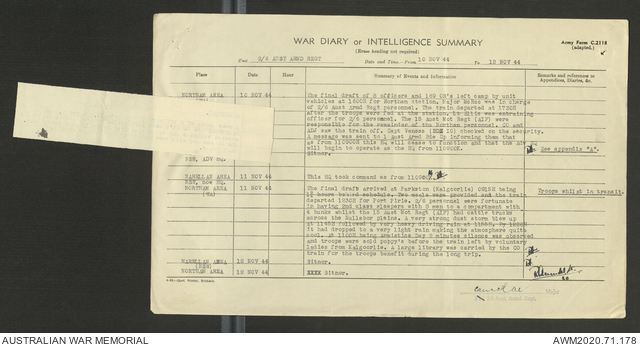 WAR DIARY or INTELLIGENCE SUMMARY
(Erase heading not required)
Army Form C.2118
(adapted.)
Unit 2/6 AUST ARMD REGT
Date and Time—From 10 NOV 44 to 12 NOV 44
Place
Date
Hour
Summary of Events and Information
Remarks and references to
Appendices, Diaries, &c.
NORTHAM AREA 10 NOV 44
The final draft of 8 officers and 169 OR's left camp by unit
vehicles at 1600S for Northam station. Major in charge
of 2/6 Aust Armd Regt personnel. The train departed at 1730S
after the troops were fed at the station. Lt Ellis was entraining
officer for 2/6 personnel. The 15 Aust Mot Regt (AIF) were
responsible for the remainder of the Northam personnel. CO and
Adv saw the train off. Capt checked on the security.
A message was sent to 1 Aust Armd Bde Up informing them that
as from 110000K this HQ will cease to function and that the
will begin to operate as the HQ from 110000K.
Sitnor.
See appendix "A".
REV, ADV HQ.
MANELLAN AREA 11 NOV 44
This HQ took command as from 110001K
REV, NOW HQ.
NORTHAM AREA 11 NOV 44
(WA)
The final draft arrived at Parkston (Kalgoorlie) being
hours behind schedule. Two meals were provided and the train
departed 1830S for Port Pirie. 2/6 personnel were fortunate
in having 2nd class sleepers with 5 men to a compartment with
4 bunks whilst the 15 Aust Mot Regt (AIF) had cattle trucks
across the Nullabor plains. A very strong dust storm blew up
at 1145S followed by very heavy driving rain at 1155S. By 1230S
it had dropped to a very light rain making the atmosphere quite
cool. At 1100S being Armistice Day 2 minutes silence was observed
and troops were sold poppy's before the train left by voluntary
ladies from Kalgoorlie. A large library was carried by the OC
train for the troops benefit during the long trip.
Troops whilst in transit.
MANELLAN AREA 12 NOV 44
(NSW)
Sitnor.
NORTHAM AREA 12 NOV 44
XXXX Sitnor.
Major
AUSTRALIAN WAR MEMORIAL
AWM2020.71.178